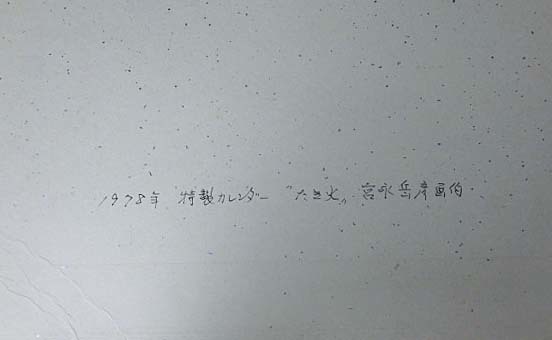 1978年 特製カレンダー “たき火„ 宮永岳彦画伯